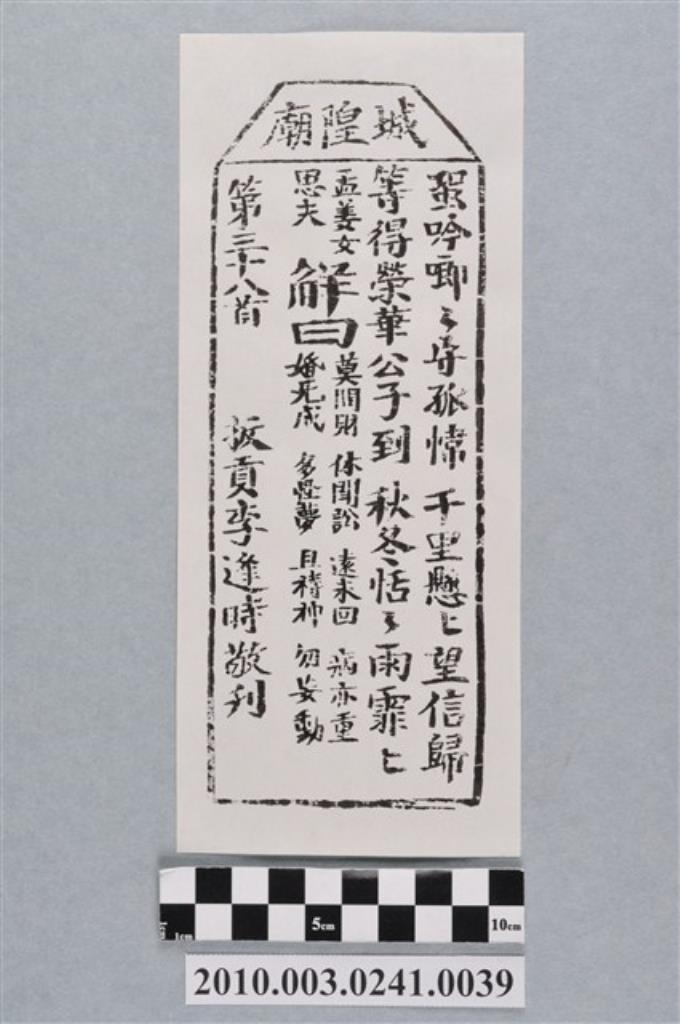 城隍廟
蛩吟唧々守孤幃 千里懸匕望信歸
等得榮華公子到 秋冬恬々雨霏匕
孟姜女
思夫
解曰
莫問財 休問訟 遠未回 病亦重
婚无成 多怪夢 且禱神 勿妄動
第三十八首 拔貢李逢時敬刊
1cm 5cm 10cm
2010.003.0241.0039